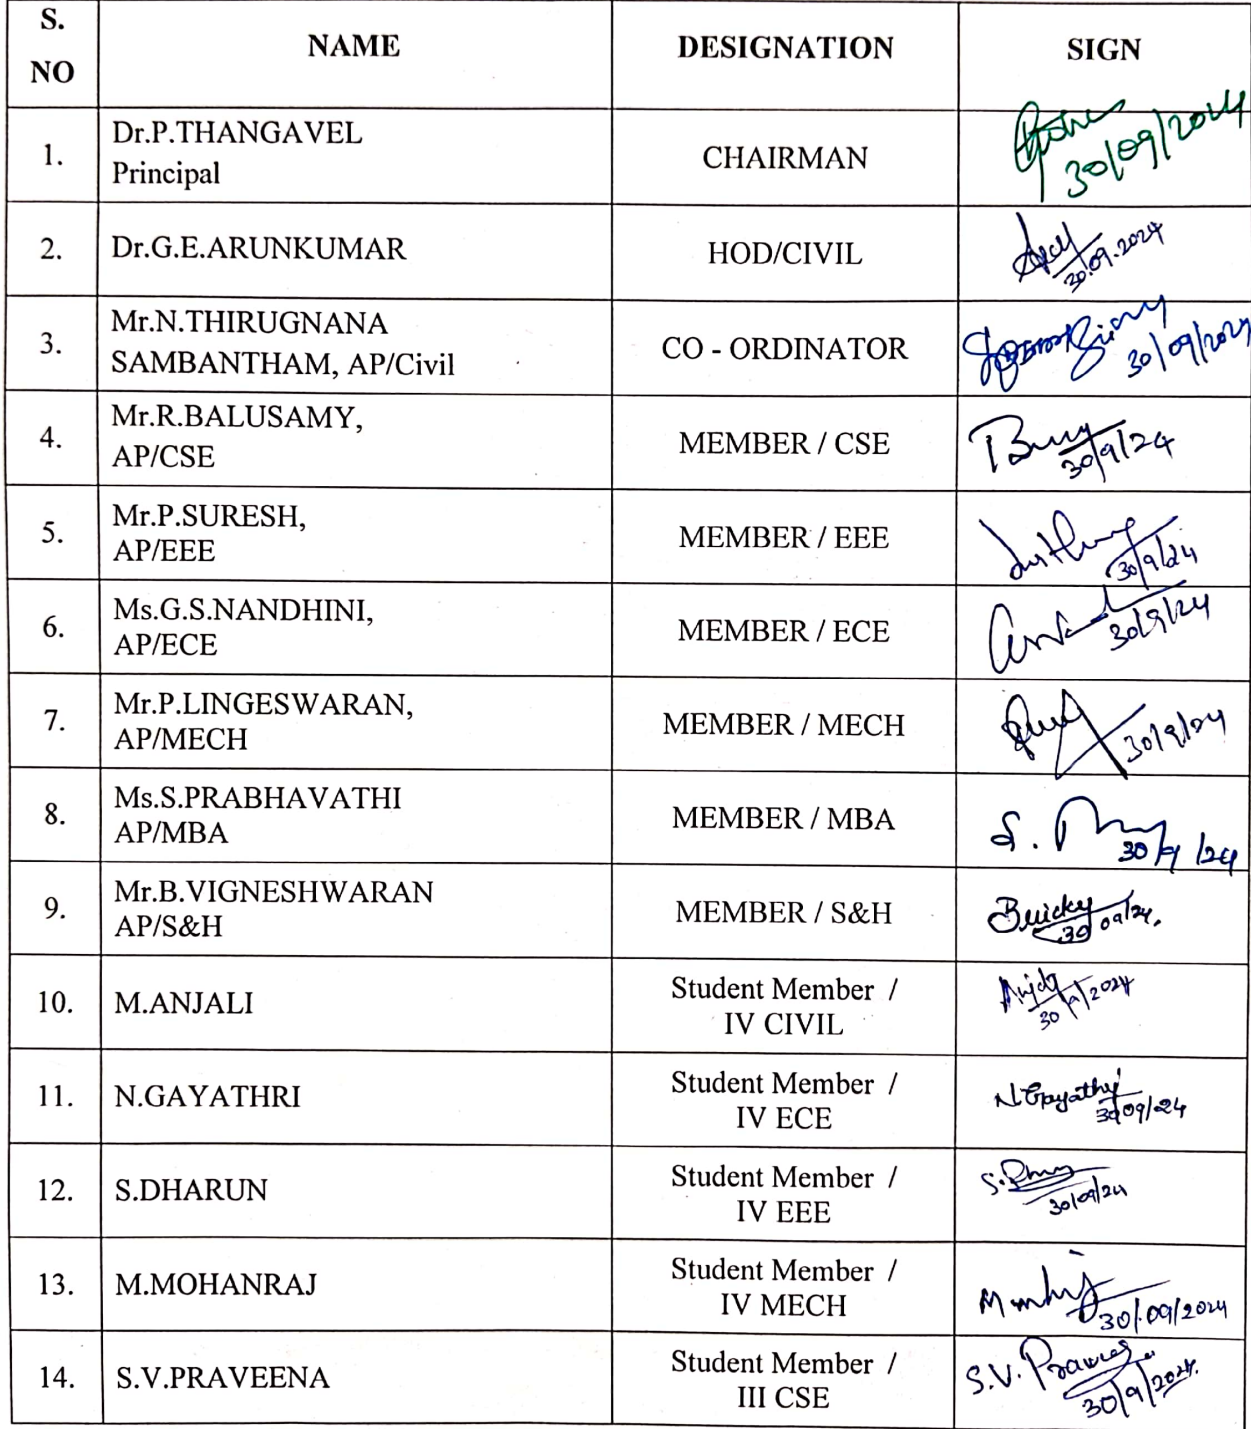 S.
NO
NAME
DESIGNATION
SIGN
1.
Dr.P.THANGAVEL
Principal
CHAIRMAN
30/09/2024
2.
Dr.G.E.ARUNKUMAR
HOD/CIVIL
30.09.2024
3.
Mr.N.THIRUGNANA
SAMBANTHAM, AP/Civil
CO - ORDINATOR
30/09/2024
4.
Mr.R.BALUSAMY,
AP/CSE
MEMBER / CSE
30/9/24
5.
Mr.P.SURESH,
AP/EEE
MEMBER / EEE
30/9/24
6.
Ms.G.S.NANDHINI,
AP/ECE
MEMBER / ECE
30/9/24
7.
Mr.P.LINGESWARAN,
AP/MECH
MEMBER / MECH
30/9/24
8.
Ms.S.PRABHAVATHI
AP/MBA
MEMBER / MBA
S.
30/9/24
9.
Mr.B.VIGNESHWARAN
AP/S&H
MEMBER / S&H
30/09/24.
10.
M.ANJALI
Student Member /
IV CIVIL
30/9/2024
11.
N.GAYATHRI
Student Member /
IV ECE
N.Gayathri
30/09/24
12.
S.DHARUN
Student Member /
IV EEE
30/09/24
13.
M.MOHANRAJ
Student Member /
IV MECH
30/09/2024
14.
S.V.PRAVEENA
Student Member /
III CSE
S.V.
30/9/2024